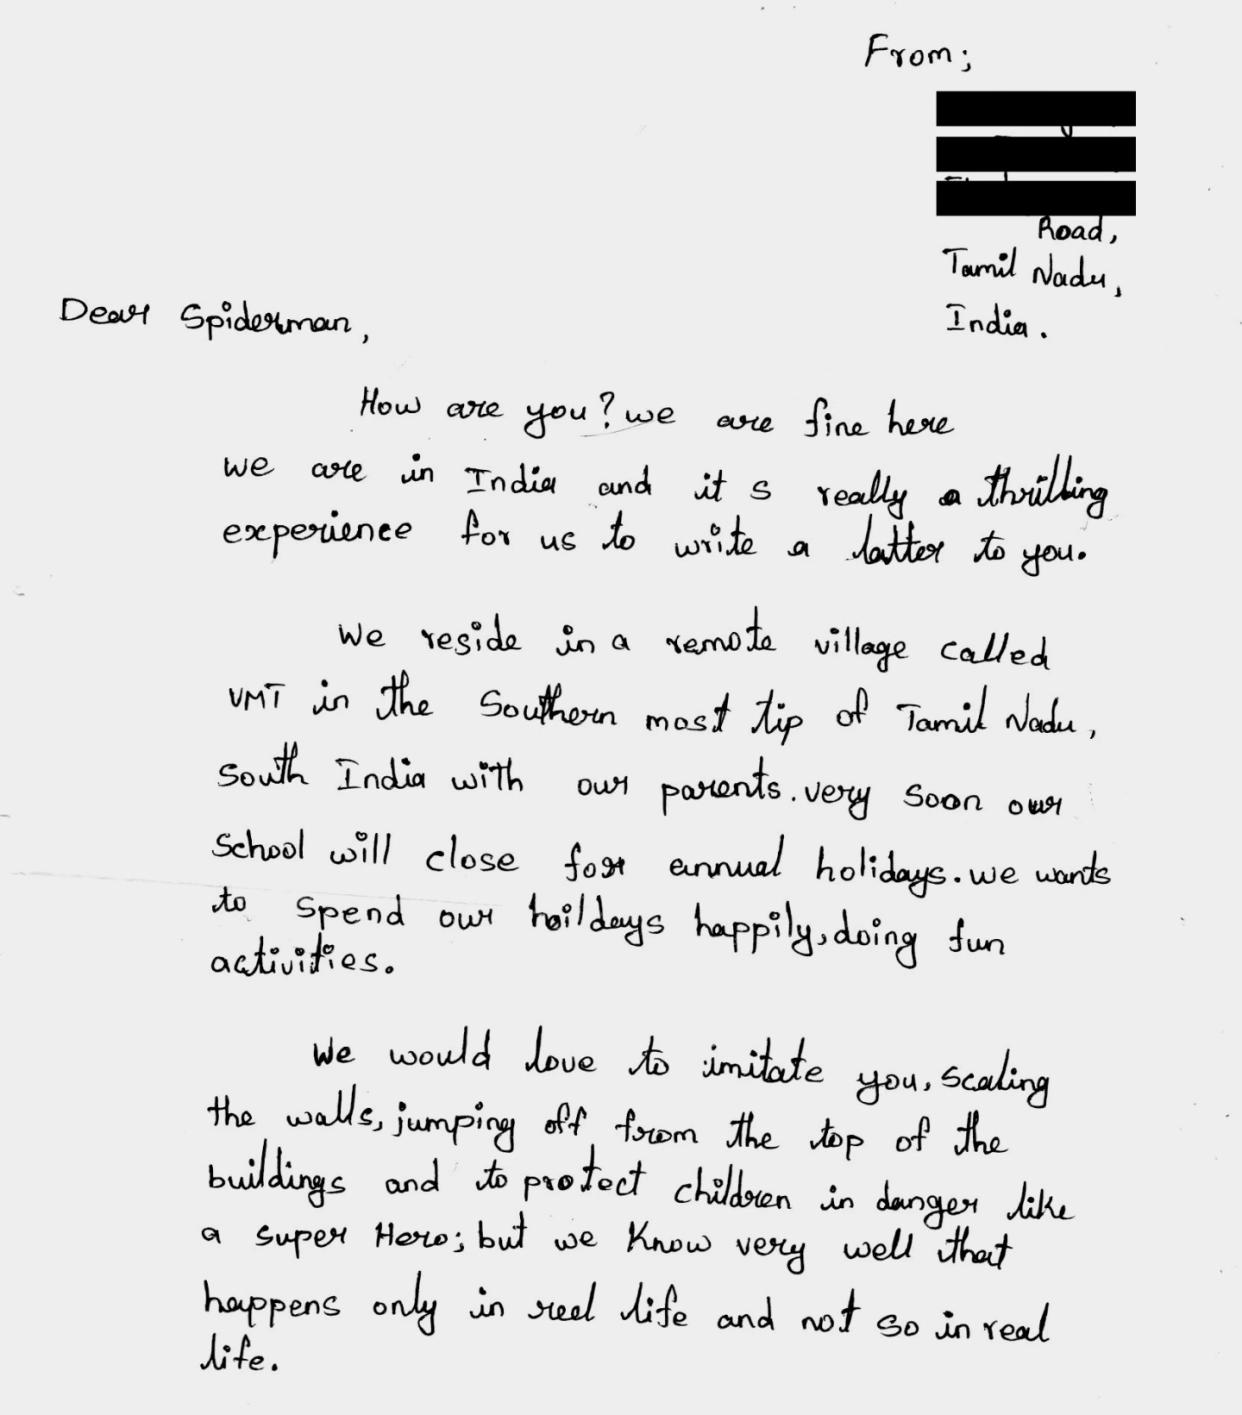 From;
Road,
Tamil Nadu,
India.
Dear Spiderman,
How are you? we are fine here
we are in India and it s really a thrilling
experience for us to write a latter to you.
We reside in a remote village called
VMT in the Southern most tip of Tamil Nadu,
South India with our parents. very soon our
School will close for annual holidays. we wants
to spend our hoildays happily, doing fun
activities.
We would love to imitate you, scaling
the walls, jumping off from the top of the
buildings and to protect children in danger like
a super Hero; but we Know very well that
happens only in reel life and not so in real
life.